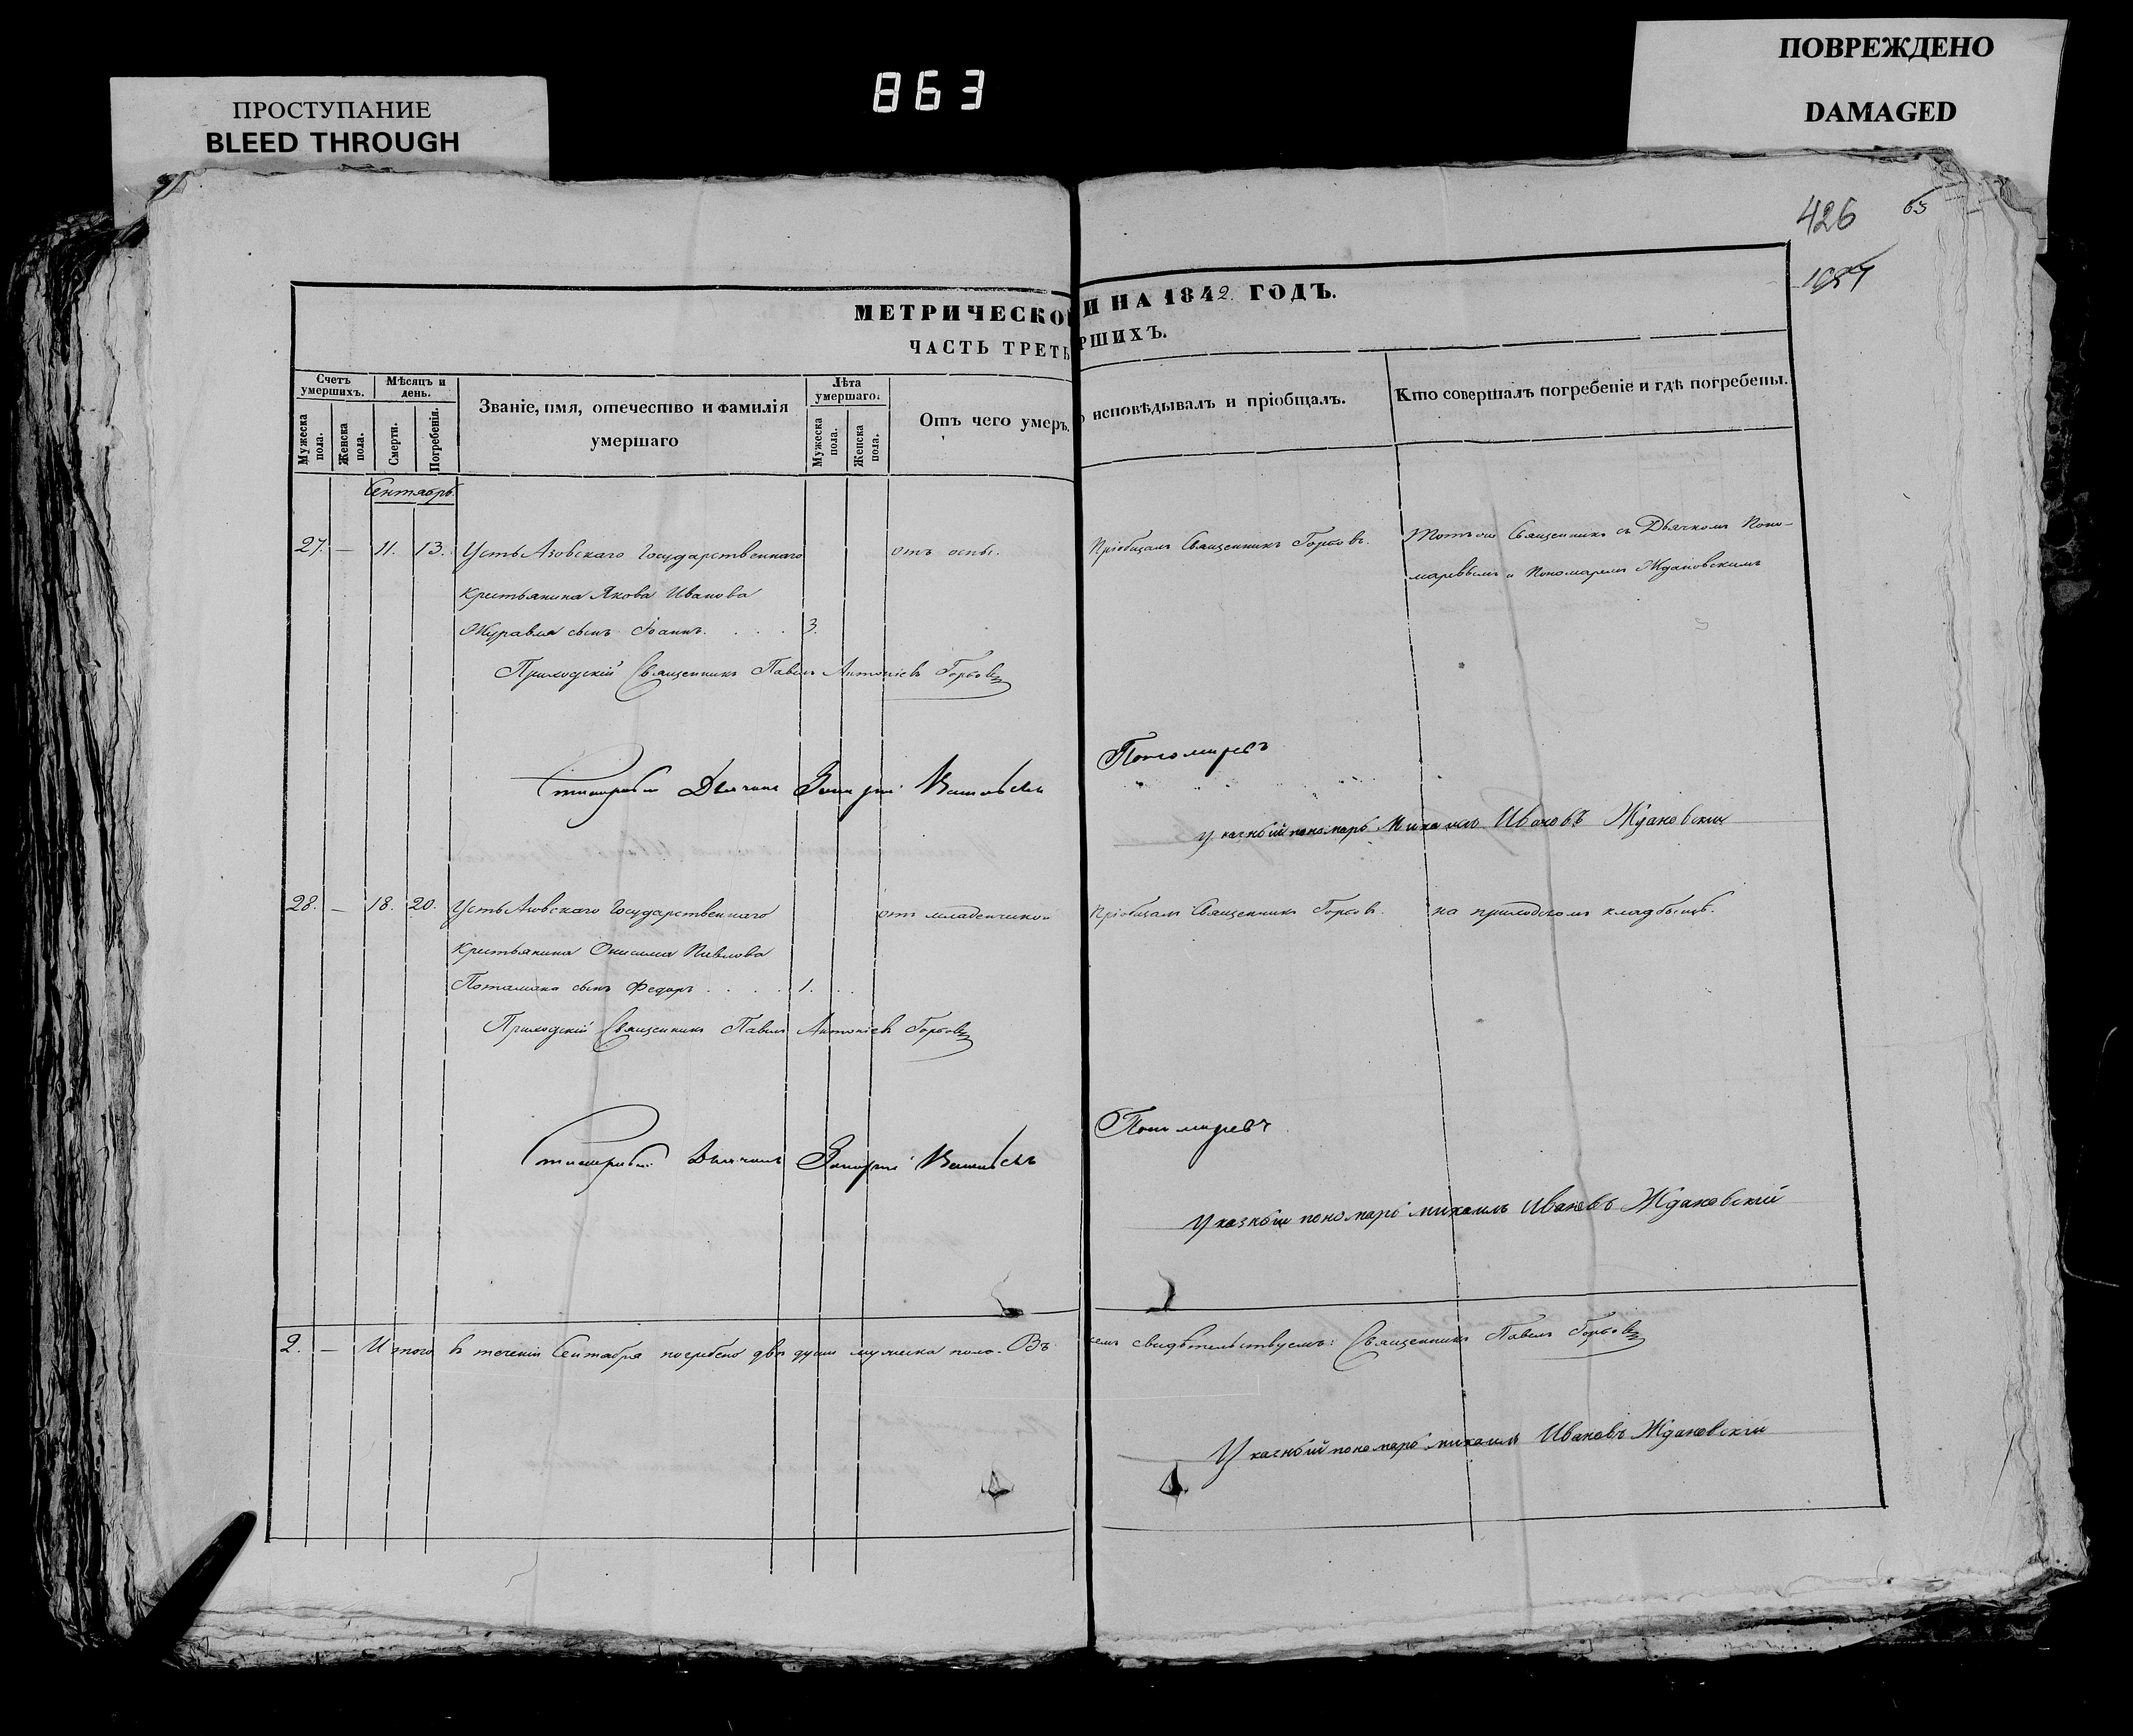 ПРОСТУПАНИЕ
BLEED THROUGH
863
ПОВРЕЖДЕНО
DAMAGED
426
65
МЕТРИЧЕСКО И НА 1842. ГОДЪ.
ЧАСТЬ ТРЕТЬ РШИХЪ.
Счетъ умершихъ.
Мужеска пола.
Женска пола.
Мѣсяцъ и день.
Смерти.
Погребенія.
Званіе, имя, отечество и фамилія умершаго
Лѣта умершаго.
Мужеска пола.
Женска пола.
Отъ чего умеръ.
о исповѣдывалъ и пріобщалъ.
Кто совершалъ погребеніе и гдѣ погребены.
Сентябрь
27. — 11. 13. Усть Азовскаго Государственнаго отъ оспы. Пріобщалъ Священникъ Горбовъ. Тотъ же Священникъ съ Дьячкомъ Поно-
крестьянина Якова Иванова маревымъ и Пономаремъ Ждановскимъ
Журавля сынъ Іоаннъ. . . . 3.
Приходскій Священникъ Павелъ Антоніевъ Горбовъ
Дьячекъ Пономаревъ
Указный пономарь Михаилъ Ивановъ Ждановскій
28. — 18. 20. Усть Азовскаго Государственнаго отъ младенческой Пріобщалъ Священникъ Горбовъ. на приходскомъ кладбищѣ.
крестьянина Онисима Павлова
сынъ Федоръ . . . . 1. . .
Приходскій Священникъ Павелъ Антоніевъ Горбовъ
Дьячекъ Пономаревъ
Указный пономарь михаилъ Ивановъ Ждановскій
2. — Итого въ теченіи Сентября погребено две души мужеска пола. Въ семъ свидѣтельствуемъ: Священникъ Павелъ Горбовъ
Указный пономарь михаилъ Ивановъ Ждановскій